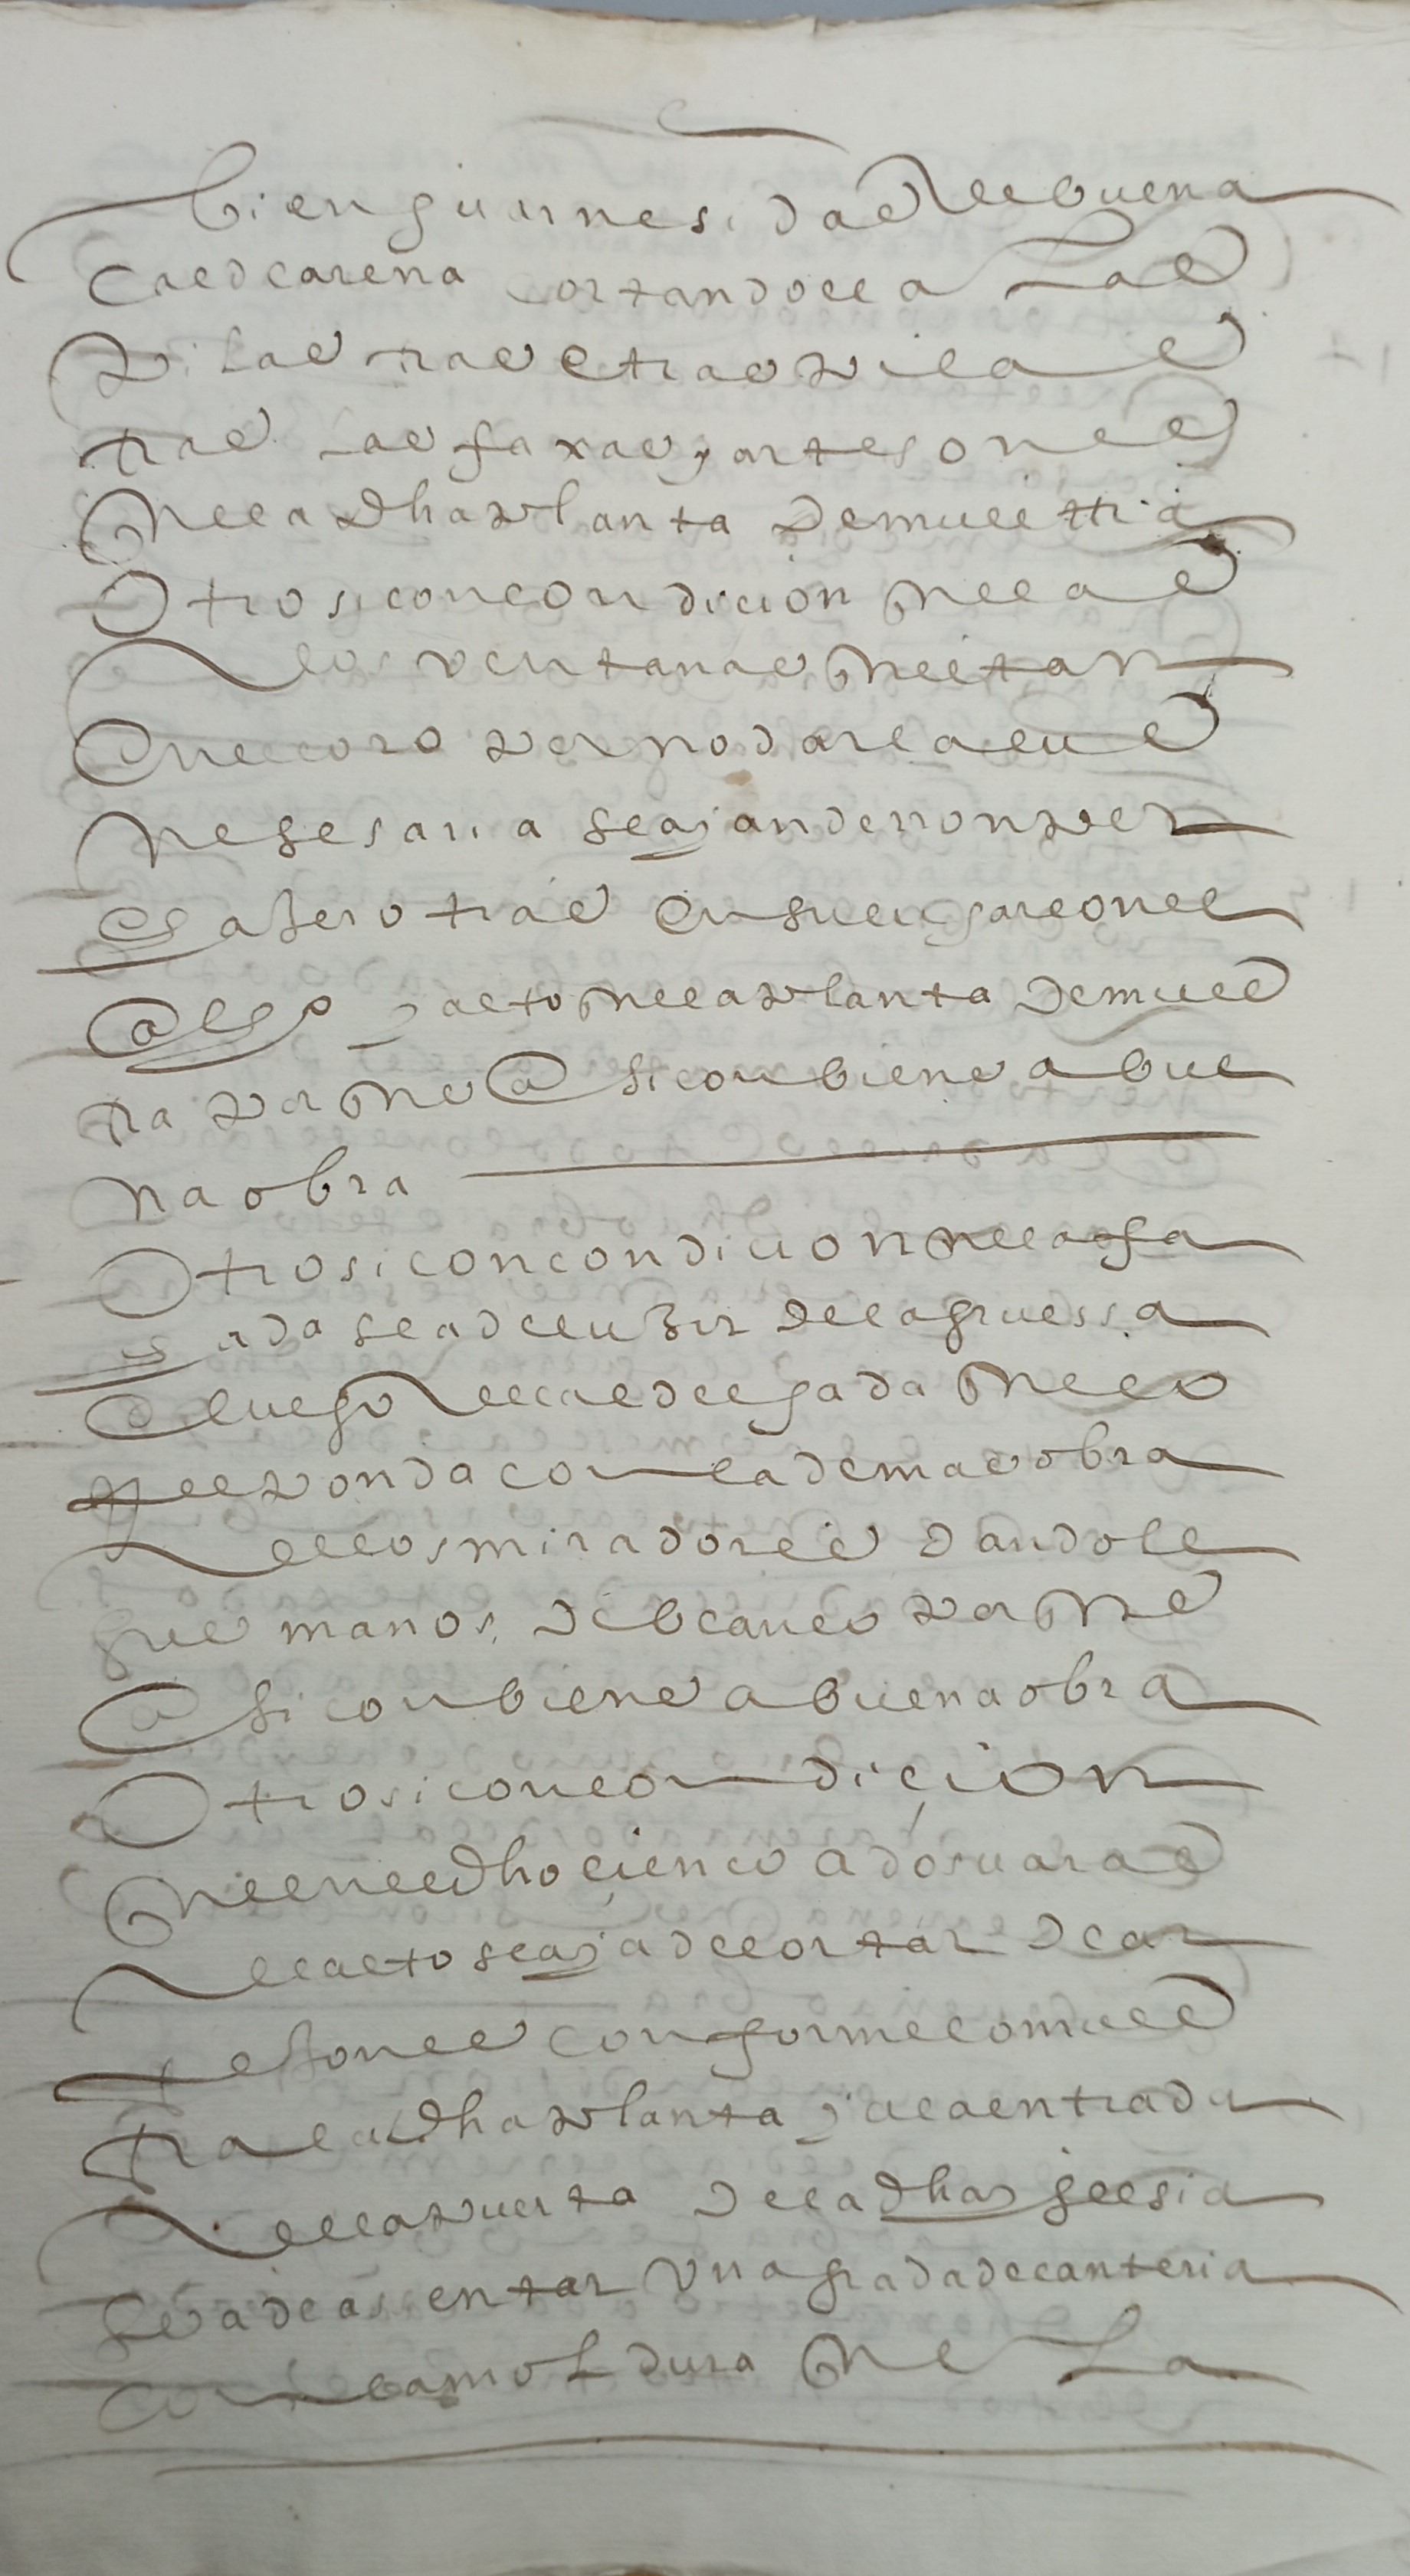 bien guarnesidas de buena
cal de arena cortandole a las
pilastras e traspilas
tras las faxas y artesones
que la dha planta demuestra
otrosi con condicion que las
dos ventanas que estan
en el coro por no dar la lus
nesesaria se ayan de rronper
y aser otras en sus lugares en el
alto y ancho que la planta demues
tra porque asi conbiene a bue
na obra
otrosi con condicion que la fa
chada se a de lusir de la gruessa
e luego de cal delgada que co
rresponda con la demas obra
de los miradores dandole
sus manos de blanco porque
asi conbiene a buena obra
otrosi con condiçion
que en el dho lienço a dos varas
de alto se aya de cortar de ar
tesones conforme lo mues
tra la dha planta y a la entrada
de la puerta de la dha yglesia
se a de asentar una grada de canteria
con la moldura que la